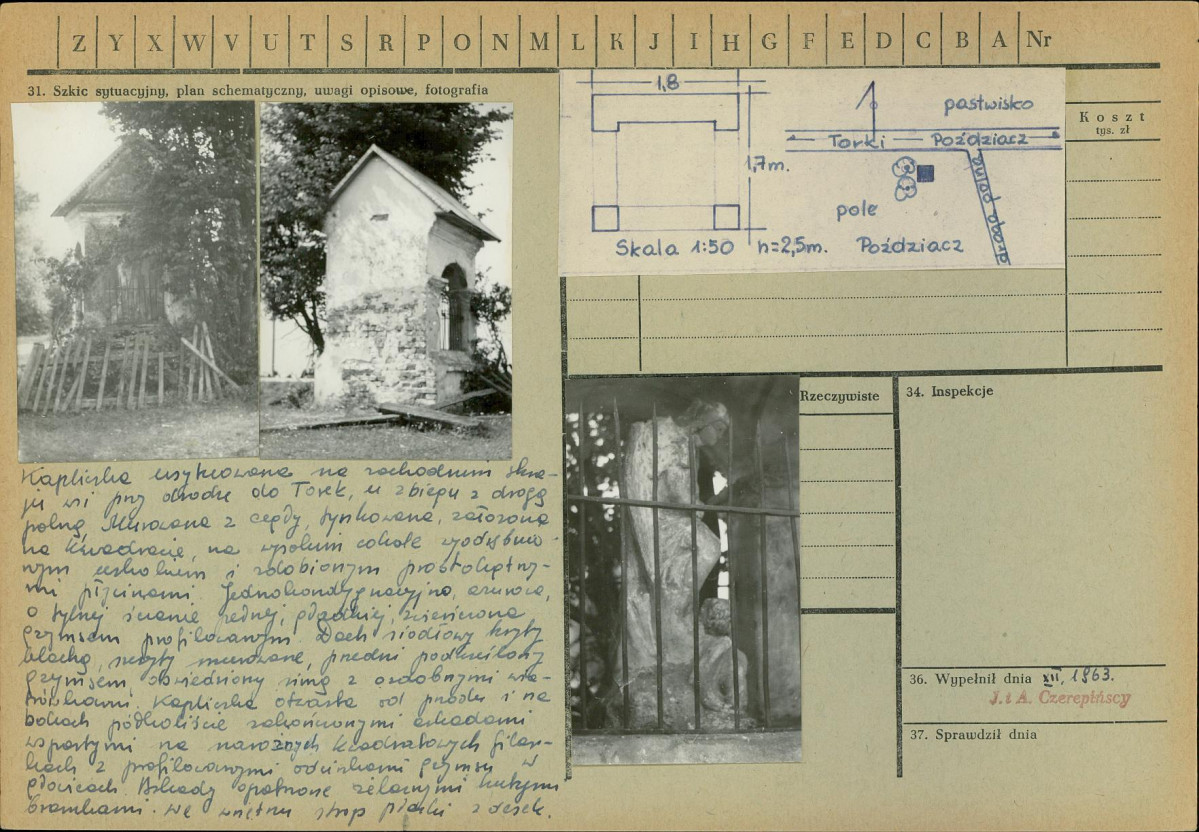 Z Y X W V U T S R P O N M L K J I H G F E D C B A Nr
31. Szkic sytuacyjny, plan schematyczny, uwagi opisowe, fotografia
1,8
1,7m.
Skala 1:50 h=2,5m.
pastwisko
Torki — Poździacz
droga polna
pole
Poździacz
Koszt
tys. zł
Rzeczywiste
34. Inspekcje
36. Wypełnił dnia XII, 1963.
J. i A. Czerepińscy
37. Sprawdził dnia
Kapliczka usytuowana na zachodnim skra-
ju wsi przy drodze do Torek, u zbiegu z drogą
polną. Murowana z cegły, tynkowana, założona
na kwadracie, na wysokim cokole wyodrębnio-
nym uskokiem i zdobionym prostokątny-
mi płycinami. Jednokondygnacyjna,
o tylnej ścianie pełnej, gładkiej, zwieńczona
gzymsem profilowanym. Dach siodłowy kryty
blachą, szczyty murowane, przedni podkreślony
gzymsem, obwiedziony z ozdobnymi wia-
trówkami. Kapliczka otwarta od przodu i na
bokach półkoliście zakończonymi arkadami
wspartymi na narożnych kwadratowych filar-
kach z profilowanymi odcinkami gzymsu w
głowicach. Arkady opatrzone żelaznymi kutymi
bramkami. We wnętrzu strop płaski z desek.